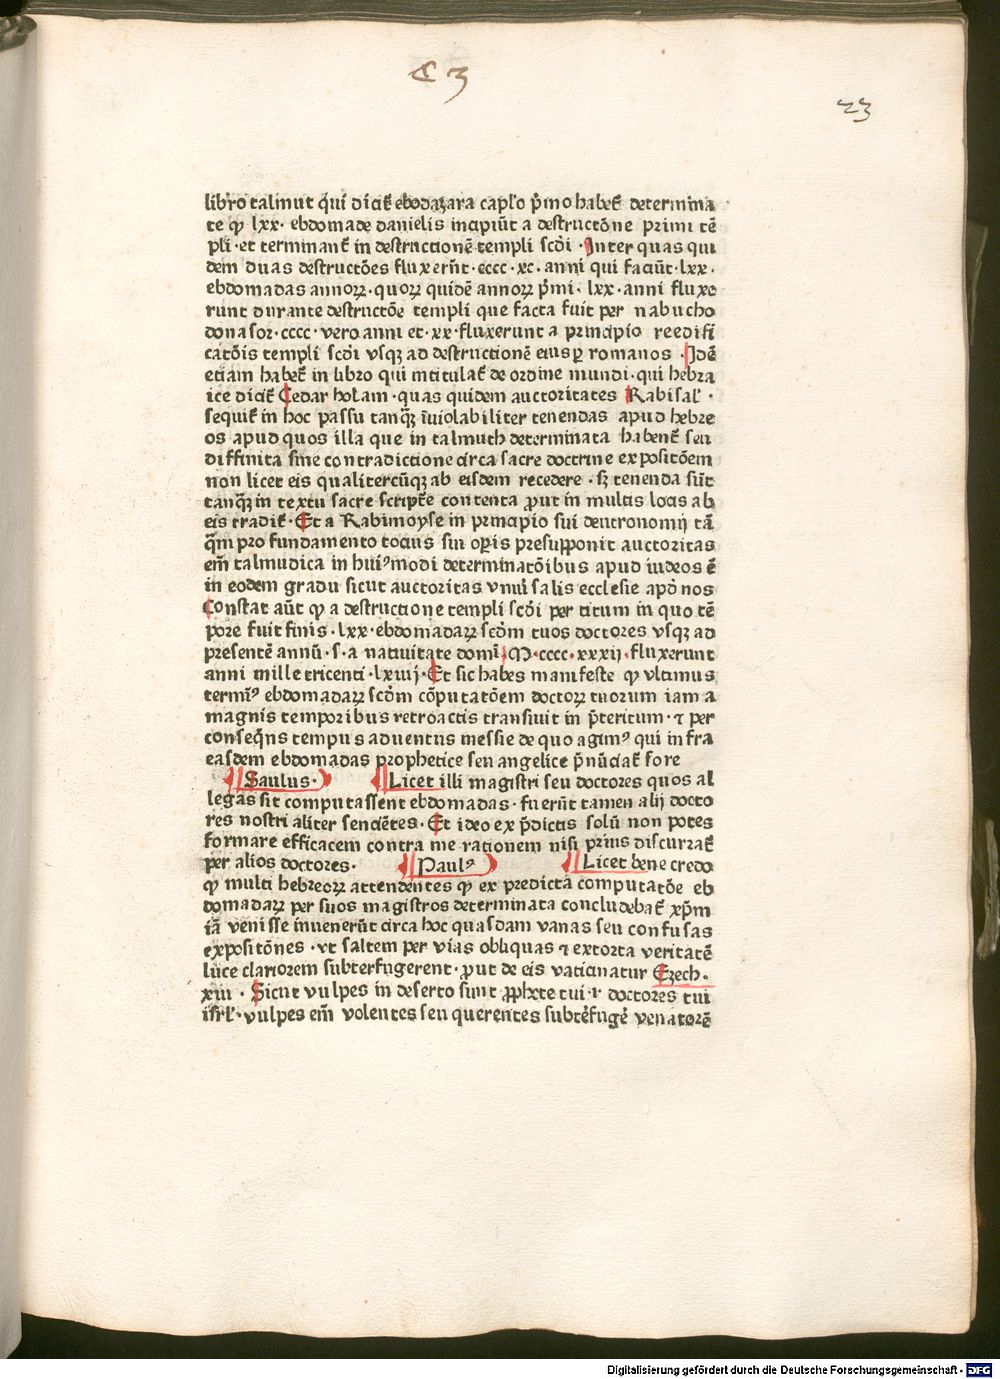 C 3
23
libro talmut q̇ui dicit̃ ebodazara capl̓o p̃mo habet̃ determina
te ꝙ lxx · ebdomade danielis incipiũt a destructõne primi tẽ
pli · et terminant̃ in destructionẽ templi scdi · Inter quas qui
dem duas destructões fluxerũt · cccc · xc · anni qui faciũt · lxx ·
ebdomadas annoꝝ · quoꝝ quidẽ annoꝝ p̃mi · lxx · anni fluxe
runt durante destructõe templi que facta fuit per nabucho
donasor · cccc · vero anni et · xx · fluxerunt a principio reedifi
catõis templi scdi vsqꝫ ad destructionẽ eius ꝑ romanos · Idẽ
etiam habet̃ in libro qui intitulat̃ de ordine mundi · qui hebra
ice dicit̃ Cedar holam · quas quidem auctoritates Rabisal̓ ·
sequit̃ in hoc passu tanqꝫ̃ ĩuiolabiliter tenendas apud hebre
os apud quos illa que in talmuth determinata habent̃ seu
diffinita sine contradictione circa sacre doctrine expositõem
non licet eis qualitercũqꝫ ab eisdem recedere · sꝫ tenenda sũt
tanqꝫ̃ in textu sacre script̃e contenta ꝓut in multis locis ab
eis tradit̃ · Et a Rabimoyse in principio sui deutronomij tã
q̃m pro fundamento tocius sui oꝑis presupponit auctoritas
em̃ talmudica in hui᾽modi determinatõibus apud iudeos ẽ
in eodem gradu sicut auctoritas vniu̓salis ecclesie apd̓ nos
Constat aũt ꝙ a destructione templi scdi per titum in quo tẽ
pore fuit finis · lxx · ebdomadaꝝ scdm̃ tuos doctores vsqꝫ ad
presentẽ annũ · s · a natiuitate domĩ · M · cccc · xxxij · fluxerunt
anni mille tricenti · lxiiij · Et sic habes manifeste ꝙ vltimus
termĩ᾽ ebdomadaꝝ scdm̃ cõputatõem doctoꝝ tuorum iam a
magnis temporibus retroactis transiuit in p̃teritum · ⁊ per
conseq̃ns tempus aduentus messie de quo agim᾽ qui infra
easdem ebdomadas prophetice seu angelice p̃nũciat̃ fore
¶ Saulus · ¶ Licet illi magistri seu doctores quos al
legas sit computassent ebdomadas · fuerũt tamen alij docto
res nostri aliter sencĩetes · Et ideo ex p̃dictis solũ non potes
formare efficacem contra me rationem nisi prius discurrat̃
per alios doctores · ¶ Paul᾽ ¶ Licet bene credo
ꝙ multi hebreoꝝ attendentes ꝙ ex predicta computatõe eb
domadaꝝ per suos magistros determinata concludebat̃ xp̃m
iã venisse inuenerũt circa hoc quasdam vanas seu confusas
expositõnes · vt saltem per vias obliquas ⁊ extorta veritatẽ
luce clariorem subterfugerent · ꝓut de eis vaticinatur Ezech ·
xiii · Sicut vulpes in deserto sunt ꝓph̃ete tui · i · doctores tui
isrl̓ · vulpes em̃ volentes seu querentes subtẽfugẽ venatorẽ
Digitalisierung gefördert durch die Deutsche Forschungsgemeinschaft · DFG